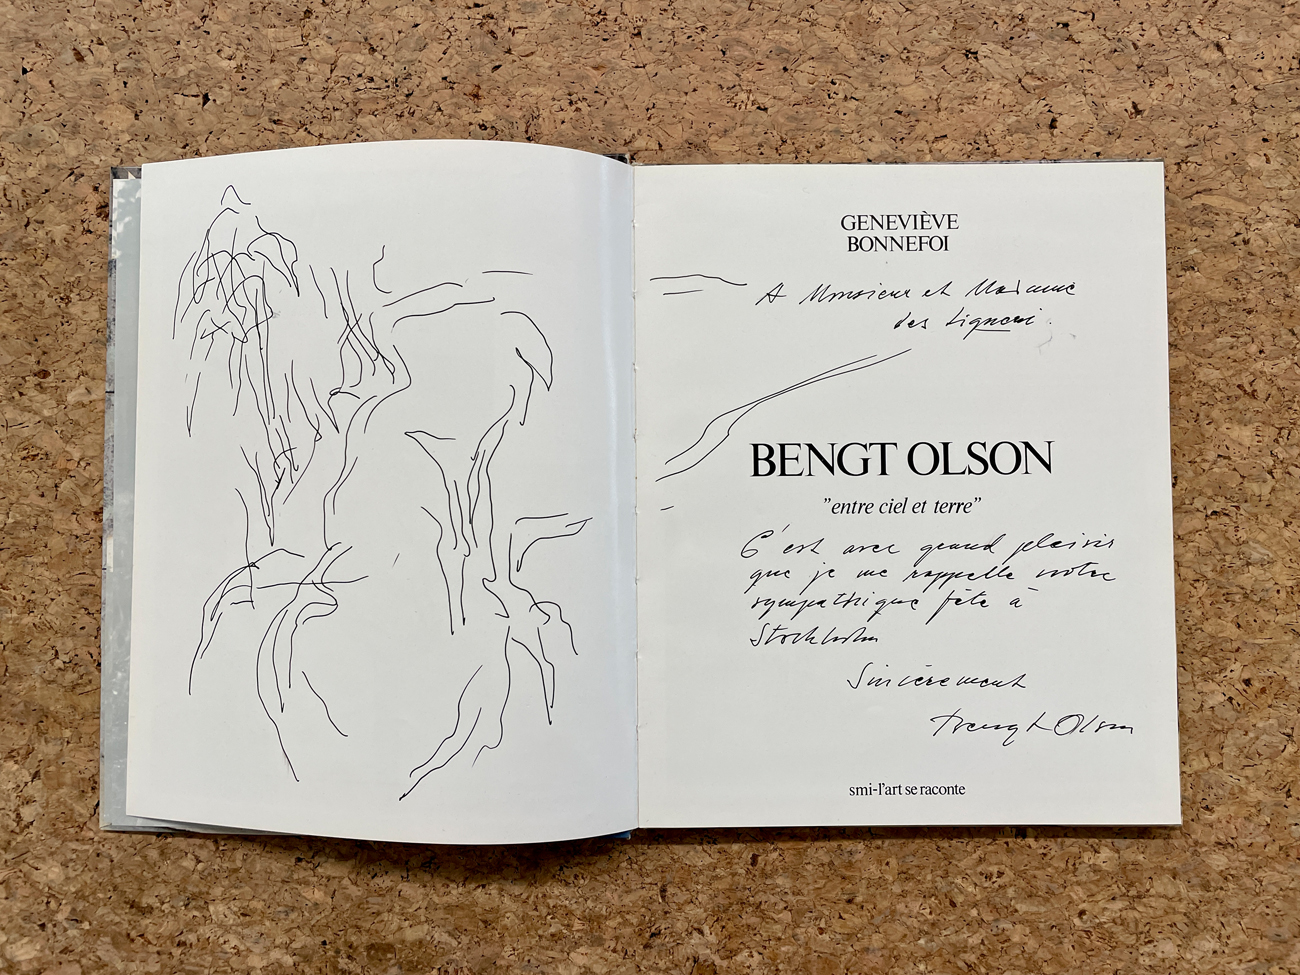 GENEVIÈVE
BONNEFOI
A Monsieur et Madame
des
BENGT OLSON
"entre ciel et terre"
C'est avec grand plaisir
que je me rappelle votre
sympathique fête à
Stockholm
Sincèrement
Bengt Olson
smi-l'art se raconte